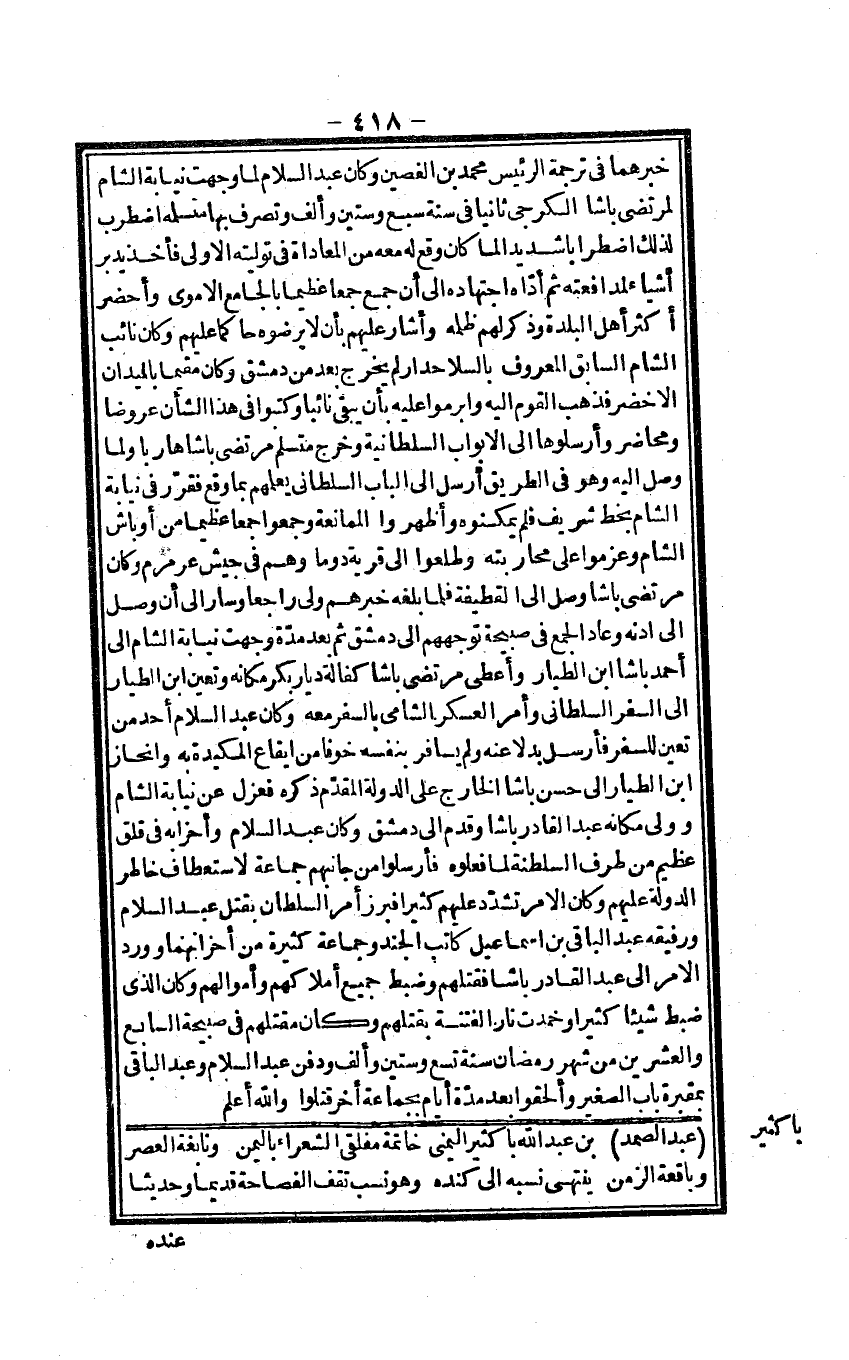 - ٤١٨ -
خبرهما فى ترجمة الرئيس محمد بن الغصين وكان عبد السلام لما وجهت نيابة الشام
لمرتضى باشا الكرجى ثانيا فى سنة سبع وستين وألف وتصرف بها متسلمه اضطرب
لذلك اضطرابا شديدا لما كان وقع له معه من المعاداة فى توليته الاولى فأخذ يدبر
أشياء لمدافعته ثم أدّاه اجتهاده الى أن جمع جمعا عظيما بالجامع الاموى وأحضر
أكثر أهل البلدة وذكر لهم ظلمه وأشار عليهم بأن لا يرضوه حاكما عليهم وكان نائب
الشام السابق المعروف بالسلاحدار لم يخرج بعد من دمشق وكان مقيما بالميدان
الاخضر فذهب القوم اليه وابرموا عليه بأن يبقى نائبا وكتبوا فى هذا الشأن عروضا
ومحاضر وأرسلوها الى الابواب السلطانية وخرج متسلم مرتضى باشا هاربا ولما
وصل اليه وهو فى الطريق أرسل الى الباب السلطانى يعلمهم بما وقع فقرّر فى نيابة
الشام بخط شريف فلم يمكنوه وأظهروا الممانعة وجمعوا جمعا عظيما من أوباش
الشام وعزموا على محاربته وطلعوا الى قرية دوما وهم فى جيش عرمرم وكان
مرتضى باشا وصل الى القطيفة فلما بلغه خبرهم ولى راجعا وسار الى أن وصل
الى ادنه وعاد الجمع فى صبيحة توجههم الى دمشق ثم بعد مدّة وجهت نيابة الشام الى
أحمد باشا ابن الطيار وأعطى مرتضى باشا كفالة ديار بكر مكانه وتعين ابن الطيار
الى السفر السلطانى وأمر العسكر الشامى بالسفر معه وكان عبد السلام أحد من
تعين للسفر فأرسل بدلا عنه ولم يسافر بنفسه خوفا من ايقاع المكيدة به وانحاز
ابن الطيار الى حسن باشا الخارج على الدولة المقدّم ذكره فعزل عن نيابة الشام
وولى مكانه عبد القادر باشا وقدم الى دمشق وكان عبد السلام وأحزابه فى قلق
عظيم من طرف السلطنة لما فعلوه فأرسلوا من جانبهم جماعة لاستعطاف خاطر
الدولة عليهم وكان الامر تشدّد عليهم كثيرا فبرز أمر السلطان بقتل عبد السلام
ورفيقه عبد الباقى بن اسماعيل كاتب الجند وجماعة كثيرة من أحزابهما وورد
الامر الى عبد القادر باشا فقتلهم وضبط جميع أملاكهم وأموالهم وكان الذى
ضبط شيئا كثيرا وخمدت نار الفتنة بقتلهم وكان مقتلهم فى صبيحة السابع
والعشرين من شهر رمضان سنة تسع وستين وألف ودفن عبد السلام وعبد الباقى
بمقبرة باب الصغير وألحقوا بعد مدّة أيام بجماعة أخر قتلوا والله أعلم
باكثير
(عبد الصمد) بن عبد الله باكثير اليمنى خاتمة مفلقى الشعراء باليمن ونابغة العصر
وباقعة الزمن ينتهى نسبه الى كنده وهو نسب تقف الفصاحة قديما وحديثا
عنده